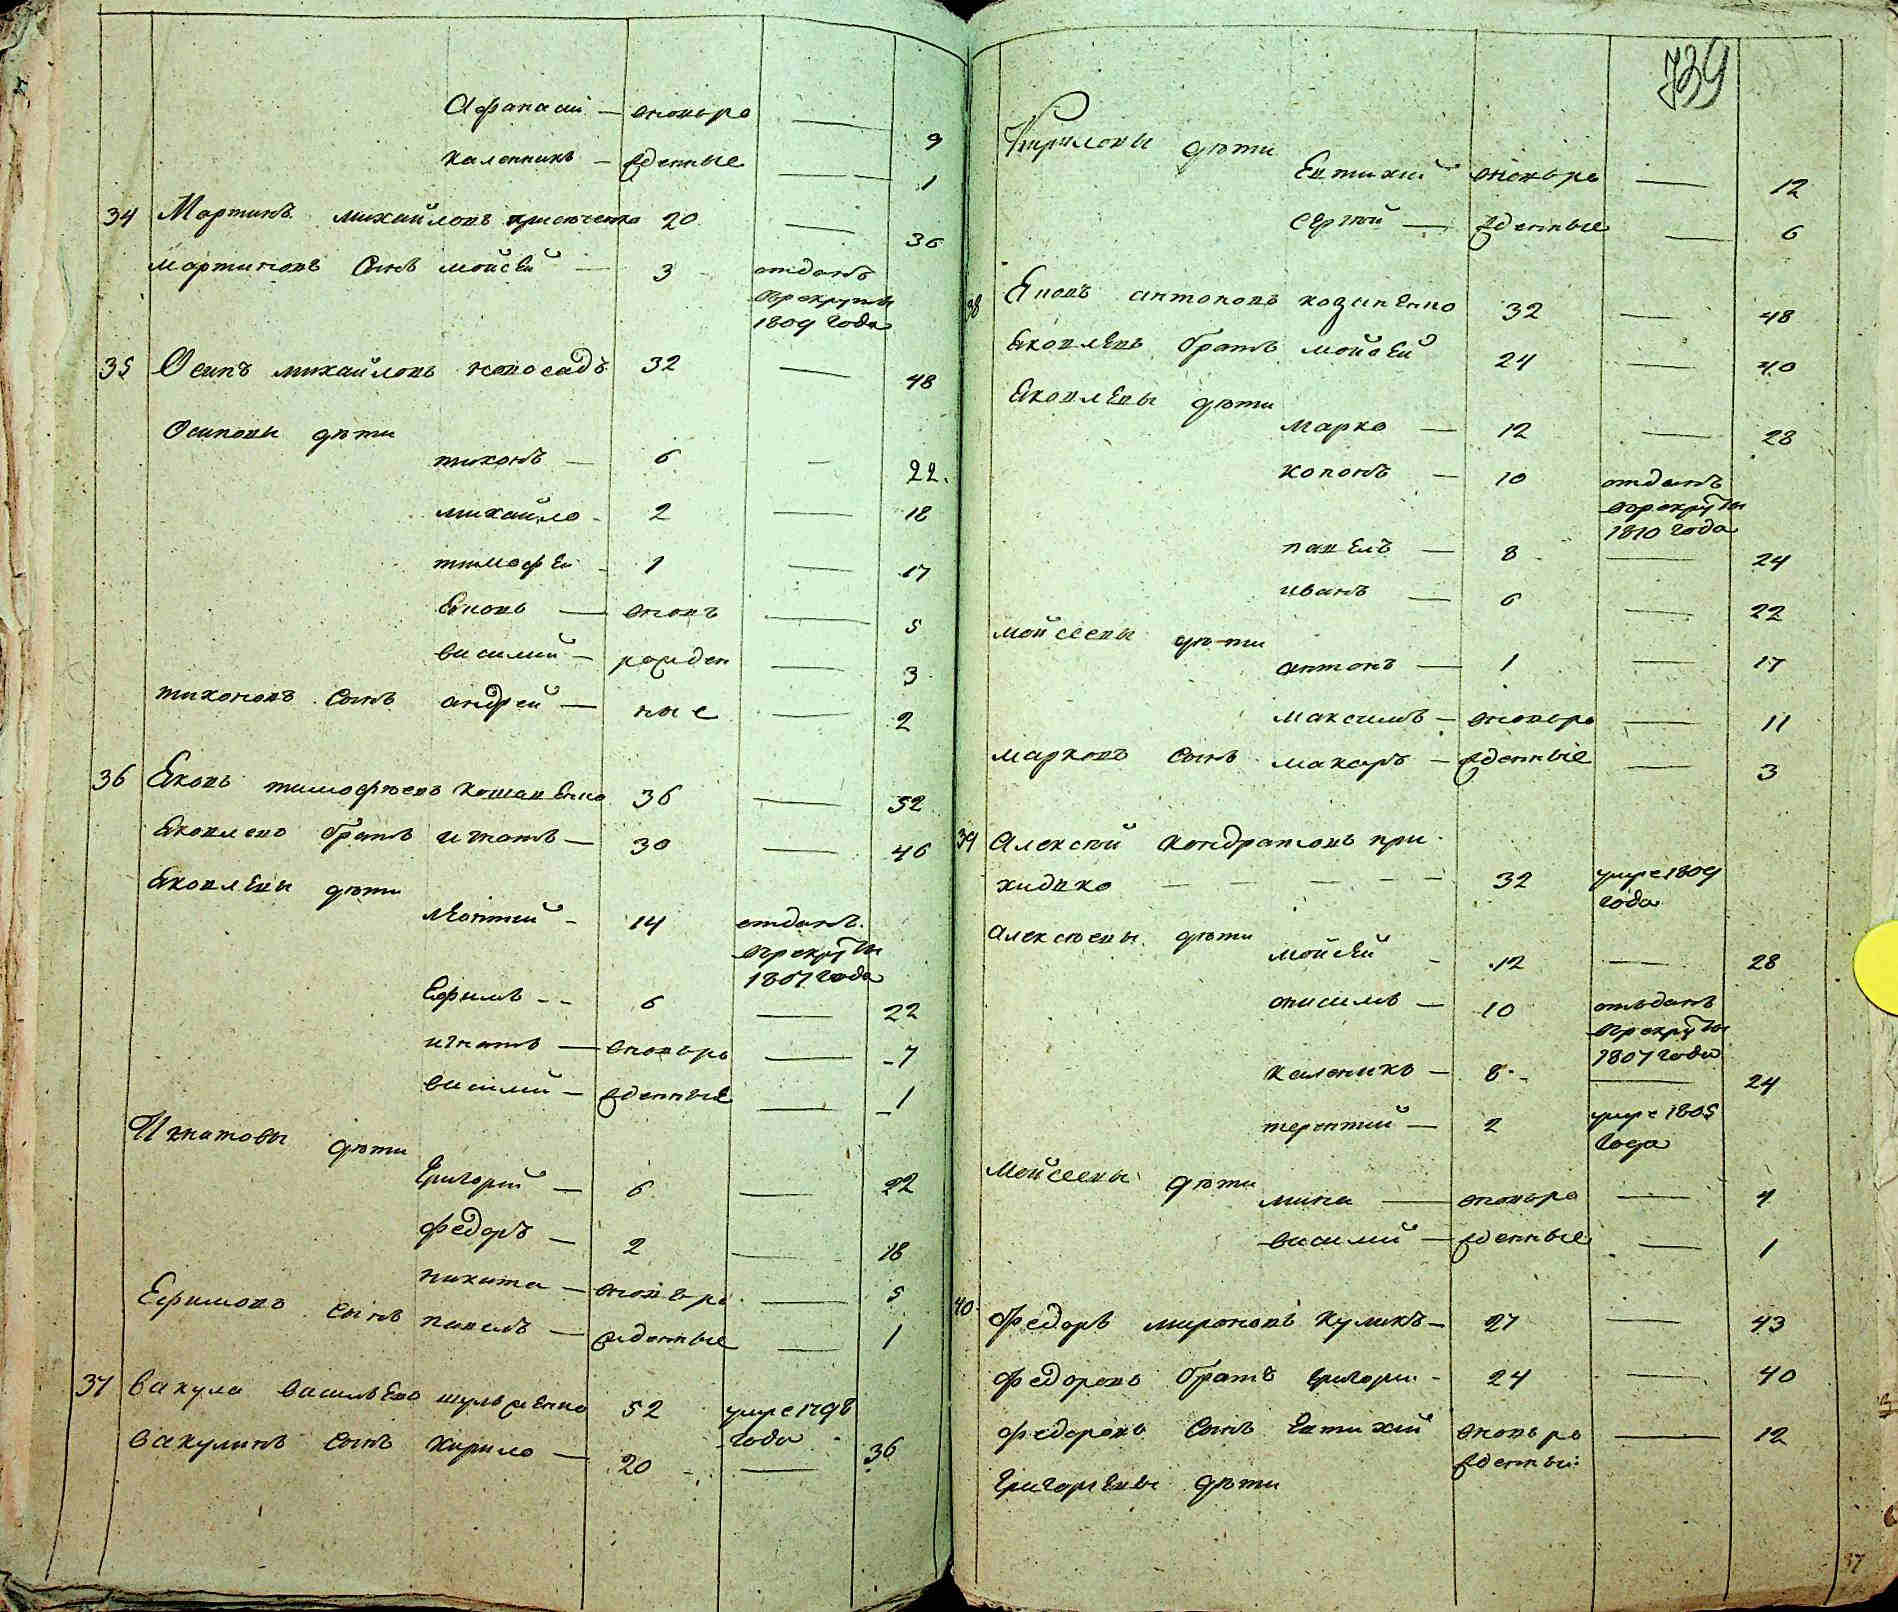 Афанасий — вновьро — 9
Каленникъ — жденные — 1
34 Мартинъ михайловъ 20 — 36
мартиновъ сынъ мойсей — 3 отданъ
въ рекруты
1809 года
35 Осипъ михайловъ новосадъ 32 — 48
Осиповы дѣти
тихонъ — 6 — 22.
михайло - 2 — 18
тимофей - 1 — 17
Яковъ — вновъ — 5
василий — рожден — 3
тихоновъ сынъ андрей — ные — 2
36 Яковъ тимофѣевъ кошевенко 36 — 52
Яковлево братъ игнатъ — 30 — 46
Яковлевы дѣти
леонтий - 14 отданъ
въ рекруты
1807 года
Ефимъ - - 6 — 22
игнатъ — вновьро — 7
василий — жденные — 1
Игнатовы дѣти
Григорий — 6 — 22
федоръ — 2 — 18
никита — вновьро — 5
Ефимовъ сынъ павелъ — жденные — 1
37 вакула васильево шульженко 52 умре 1798
года
вакулинъ сынъ кирило — 20 — 36
739
Кириловы дѣти
Евтихий вновьро — 12
Сергѣй — жденные — 6
38 Яковъ антоновъ козаненко 32 — 48
Яковлевъ братъ мойсей 24 — 40
Яковлевы дѣти
марко — 12 — 28
кононъ — 10 отданъ
въ рекруты
1810 года
павелъ — 8 — 24
иванъ — 6 — 22
мойсеевы дѣти
антонъ — 1 — 17
максимъ — вновьро — 11
марковъ сынъ макаръ — жденные — 3
39 Алексѣй кондратовъ при
хидко — — — — 32 умре 1809
года
алексѣевы дѣти
мойсей - 12 — 28
онисимъ — 10 отъданъ
въ рекруты
1807 года
каленикъ — 8 - — 24
терентий — 2 умре 1805
года
Мойсеевы дѣти
мина — вновьро — 4
василий — жденные — 1
40 Федоръ мироновъ куликъ — 27 — 43
федоровъ братъ григори - 24 — 40
федоровъ сынъ Евтихий вновьро — 12
жденный
Григорьевы дѣти
37